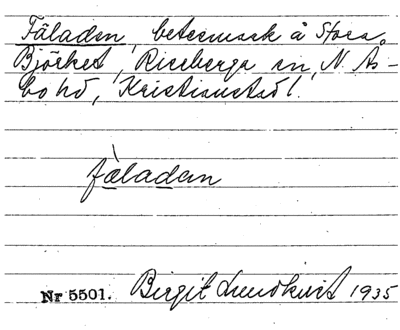 Fäladen, betesmark å Stora
Björket, Riseberga sn, N. Ås-
bo hd, Kristianstads l.
fäladen
Nr 5501. Birgit Lundkvist 1935